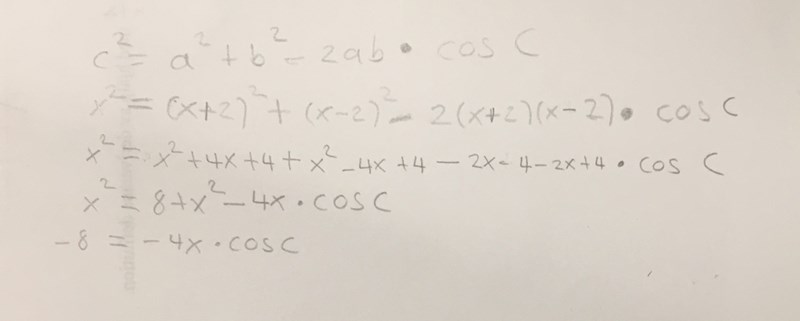 c² = a² + b² - 2ab • cos C
x² = (x+2)² + (x-2)² - 2(x+2)(x-2) • cos C
x² = x² + 4x + 4 + x² - 4x + 4 - 2x - 4 - 2x + 4 • cos C
x² = 8 + x² - 4x • cos C
-8 = -4x • cos C